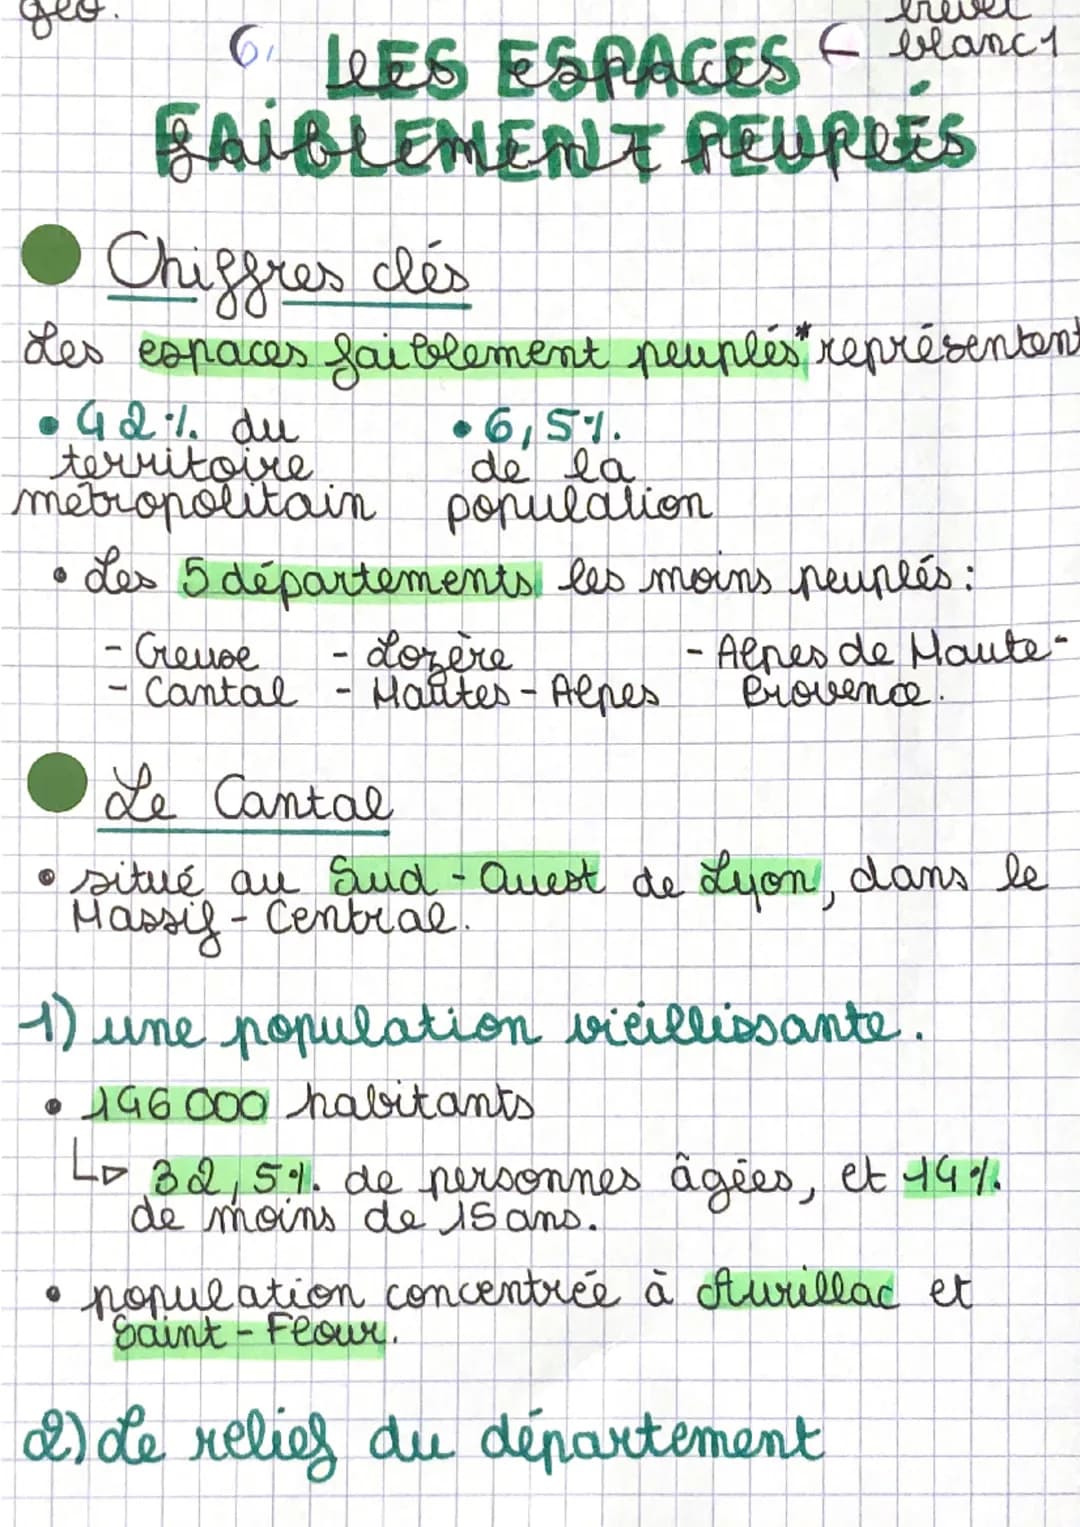 géo.
brevet
6. LES ESPACES ← blanc 1
FAIBLEMENT PEUPLÉS
Chiffres clés
Les espaces faiblement peuplés* représentent
• 42% du • 6,5%.
territoire de la
métropolitain population
• Les 5 départements les moins peuplés :
- Creuse - Lozère - Alpes de Haute-
- Cantal - Hautes-Alpes Provence.
Le Cantal
• situé au Sud-Ouest de Lyon, dans le
Massif-Central.
1) une population vieillissante.
• 146 000 habitants
↳ 32,5%. de personnes âgées, et 14%.
de moins de 15 ans.
• population concentrée à Aurillac et
Saint-Flour.
2) Le relief du département